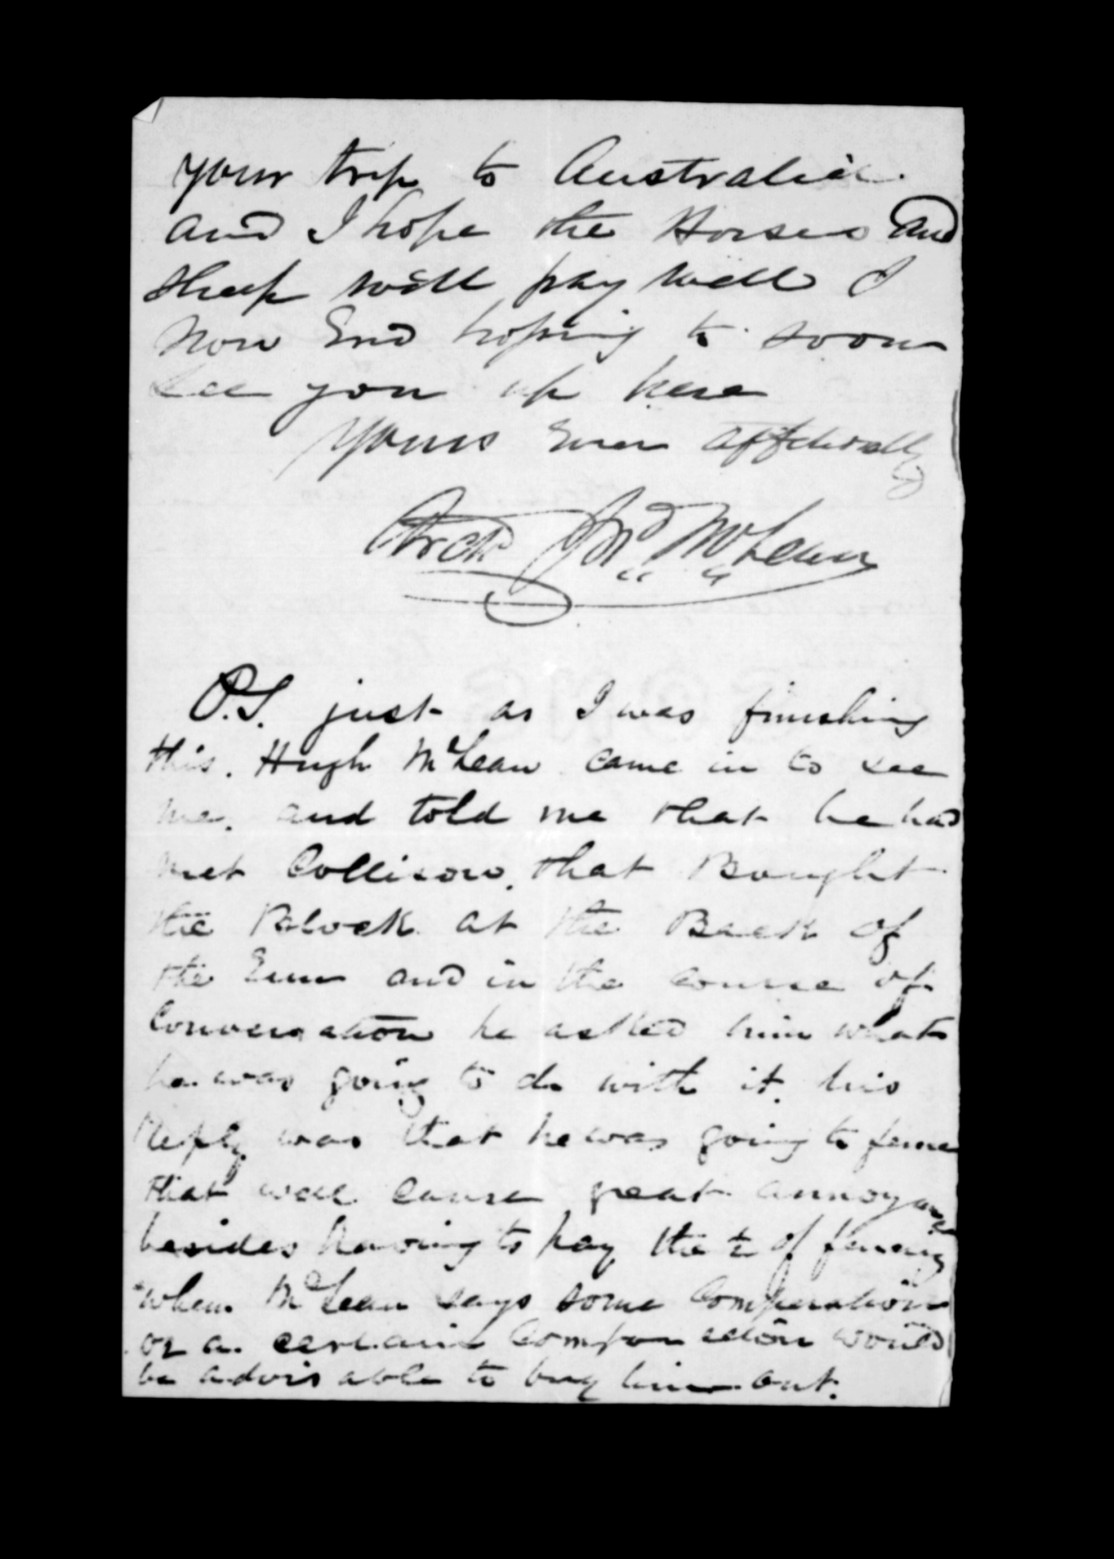 your trip to Australia.
and I hope the Horses and
sheep will pay well I
now End hoping to soon
see you up here
Yours Ever affctnally
Archd Jno. McLean
P.S. just as I was finishing
this. Hugh McLean came in to see
me. and told me that he had
met Collison. that Bought
the Block at the Back of
the and in the course of
Conversation he asked him what
he was going to do with it. his
Reply was that he was going to fence
that will cause great annoyance
besides having to pay the ½ of fencing
when McLean says some Compensation
or a. certain would
be advisable to buy him out.